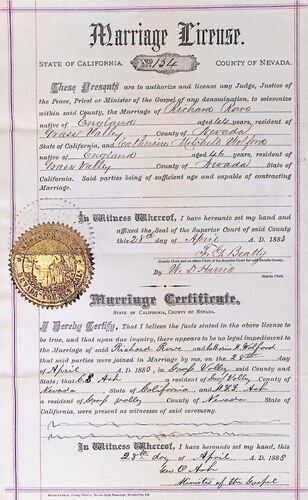 Marriage License.
STATE OF CALIFORNIA, No. 154 COUNTY OF NEVADA.
These Presents are to authorize and license any Judge, Justice of
the Peace, Priest or Minister of the Gospel of any denomination, to solemnize
within said County, the Marriage of Richard Rowe
native of England aged years, resident of
Grass Valley County of Nevada
State of California, and Catherine Mitchell Wolford
native of England aged years, resident of
Grass Valley County of Nevada State of
California. Said parties being of sufficient age and capable of contracting
Marriage.
In Witness Whereof, I have hereunto set my hand and
affixed the Seal of the Superior Court of said County
this 28th day of April A.D. 1885
F. G. Beatty
County Clerk and ex-officio Clerk of the Superior Court for said Nevada County.
By W. D. Harris
Deputy Clerk.
Marriage Certificate.
STATE OF CALIFORNIA, COUNTY OF NEVADA.
I Hereby Certify, That I believe the facts stated in the above license to
be true, and that upon due inquiry, there appears to be no legal impediment to
the Marriage of said Richard Rowe and M. Wolford
that said parties were joined in Marriage by me, on the 28th day
of April A.D. 1885, in Grass Valley said County and
State; that C. E. Ash a resident of Grass Valley County of
Nevada State of California, and Ash
a resident of Grass Valley County of Nevada State of
California, were present as witnesses of said ceremony.
In Witness Whereof, I have hereunto set my hand, this
28th day of April A.D. 1885
Geo. O. Ash
Minister of the Gospel